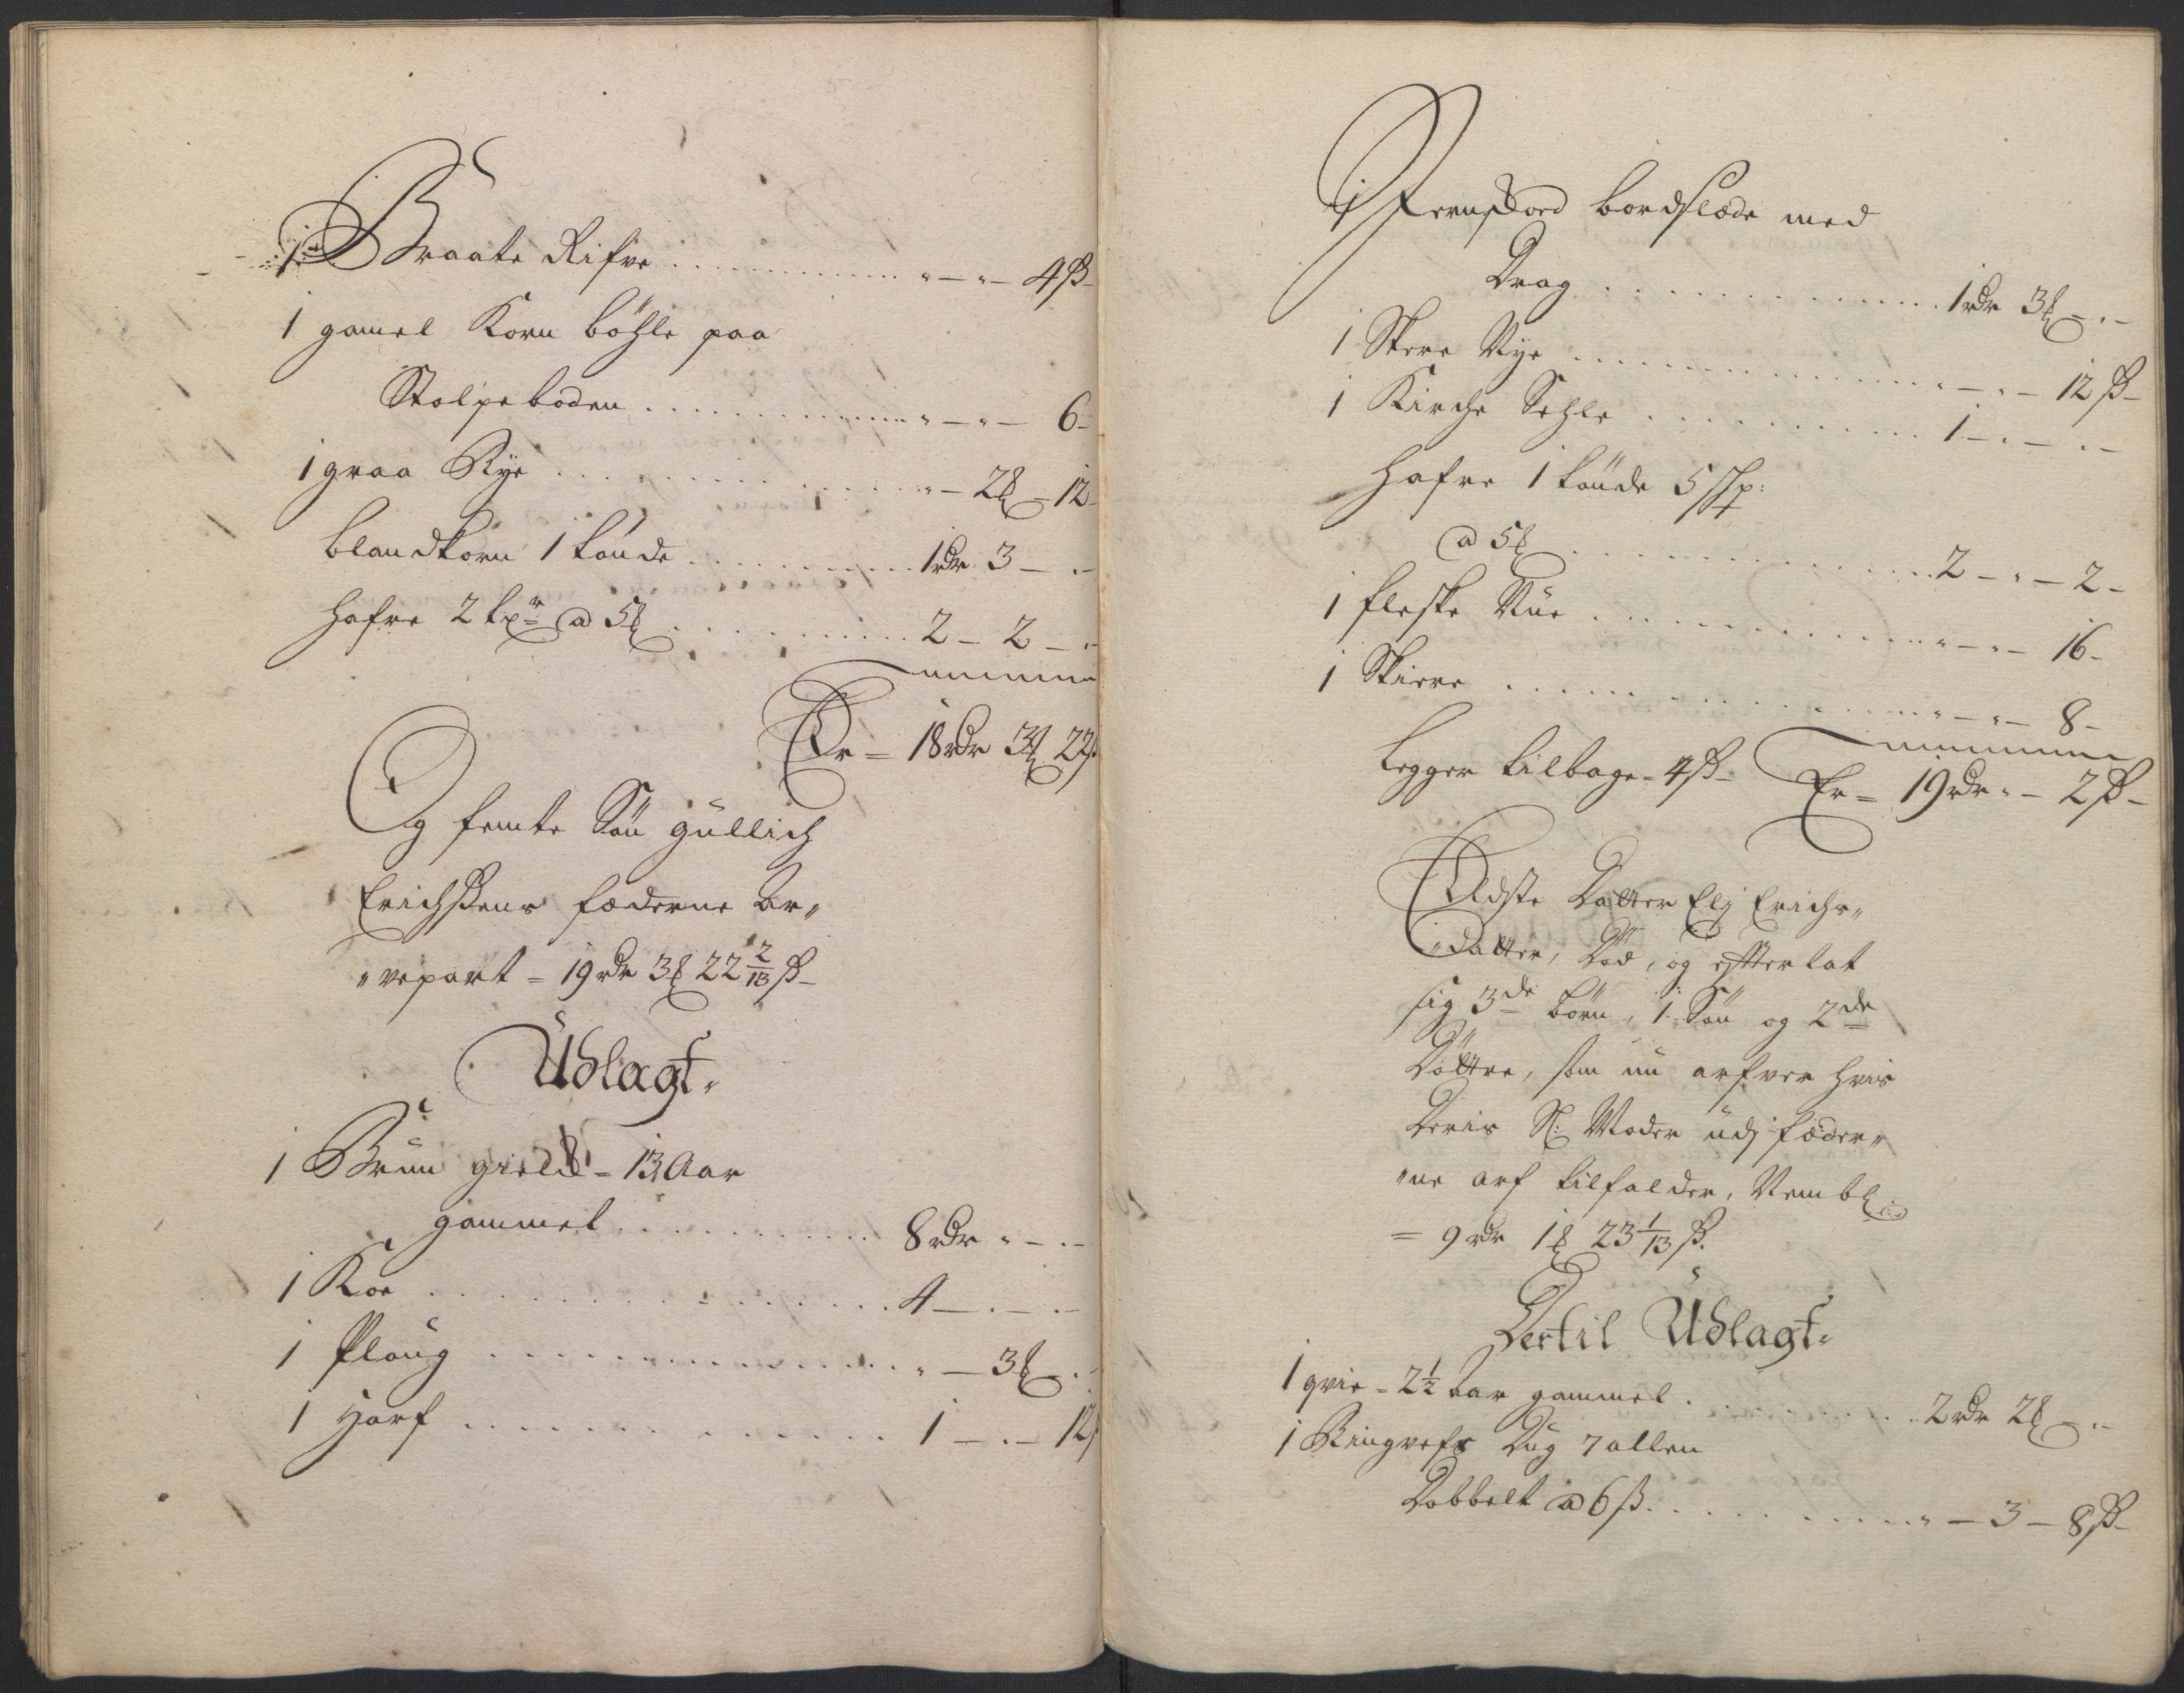 1 Braate Rifve . . . . . . . . „ — „ — 4 ß
1 gamel Korn böhle paa
Stolpeboden . . . . . . . . „ — „ — 6 -
1 graa Rye . . . . . . . . „ — 2 — 12 -
blandkorn 1 tönde . . . . . . . . 1 rdr 3 — „ -
Hafre 2 tpr a 5 . . . . . . . . 2 — 2 — „ -
Er = 18 rdr 3 22 ß
Og femte Sön Gullich
Erichssens fæderne Ar„
„vepart = 19 rdr 3 22 2/13 ß
Udlagt.
1 Brun gield = 13 Aar
gammel . . . . . . . . 8 rdr „ — „ -
1 Koe . . . . . . . . 4 — „ — „ -
1 Ploug . . . . . . . . „ — 3 — „ -
1 Harf . . . . . . . . 1 — „ — 12 ß
1 bordslæde med
Drag . . . . . . . . 1 rdr 3 — „ -
1 Store Rye . . . . . . . . „ — „ — 12 ß
1 Kirche Sehle . . . . . . . . 1 — „ — „ -
Hafre 1 tönde 5 skp:
a 5 . . . . . . . . 2 — „ — 2 -
1 fleske . . . . . . . . „ — „ — 16 -
1 Skiere . . . . . . . . „ — „ — 8 -
Legger tilbage = 4 ß Er = 19 rdr „ — 2 ß
Eldste Datter Elj Erichs„
„datter, Död, og effterlat
sig 3de börn, 1 Sön og 2de
Döttre, som nu arfver hvis
Deris Sl: Moder udj fæder„
„ne arf tilfalder, Nembl:
= 9 rdr 1 23 1/13 ß.
Dertil Udlagt.
1 qvie = 2 1/2 Aar gammel . . . . . . . . 2 rdr 2 — „ -
1 Ringvefs Dug 7 allen
Dobbelt a 6 ß . . . . . . . . „ — 3 — 8 ß